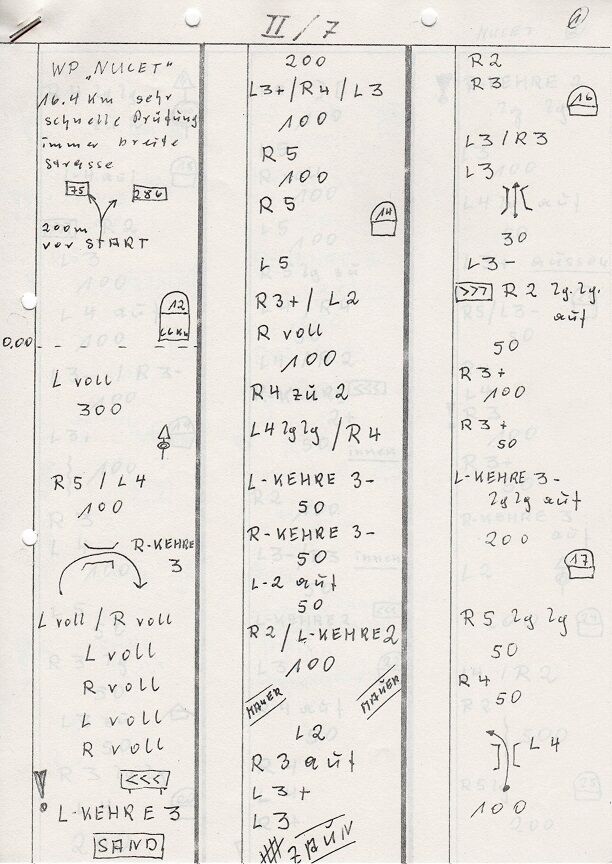 II/7
1
WP „NUCET"
16.4 Km sehr
schnelle Prüfung
immer breite
Strasse
75
286
200m
vor START
12
0,00
L voll
300
R5 / L4
100
R-KEHRE
3
L voll / R voll
L voll
R voll
L voll
R voll
<<<
! L-KEHRE 3
SAND
200
L3+/R4/L3
100
R5
100
R5
14
L5
R3+/L2
R voll
100
R4 zu 2
L4 lglg /R4
L-KEHRE 3-
50
R-KEHRE 3-
50
L-2 auf
50
R2/L-KEHRE2
100
MAUER
MAUER
L2
R3 auf
L3+
L3
ZAUN
R2
R3
16
L3/R3
L3
30
L3-
>>> R2 lg.lg.
auf
50
R3+
100
R3+
50
L-KEHRE 3-
lglg auf
200
17
R5 lglg
50
R4
50
L4
100